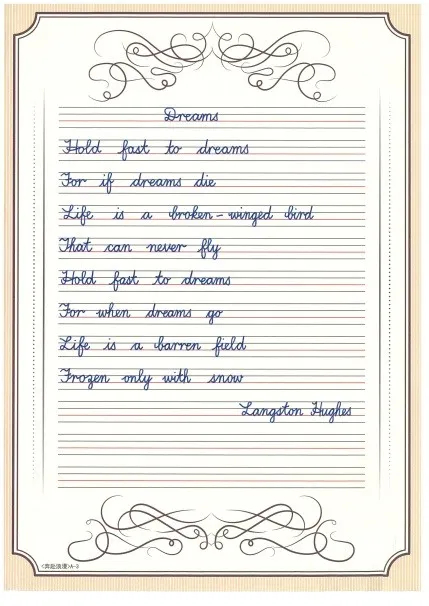 Dreams
Hold fast to dreams
For if dreams die
Life is a broken-winged bird
That can never fly
Hold fast to dreams
For when dreams go
Life is a barren field
Frozen only with snow
Langston Hughes
《奔赴浪漫》A-3